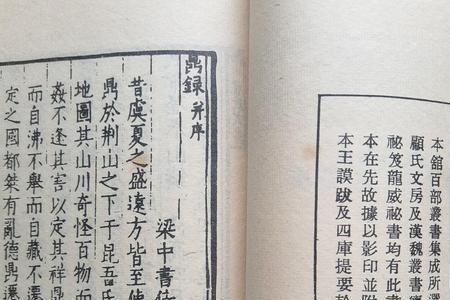 本舘百部叢書集成所選
顧氏文房及漢魏叢書
祕笈龍威祕書均有此
本在先故據以影印並附
本王謨跋及四庫提要於
鼎録 并序
梁中書侍
昔虞夏之盛遠方皆至使
鼎於荆山之下于昆吾氏
地圖其山川奇怪百物而
姦不逢其害以定其祥鼎
而自沸不舉而自藏不遷
定之國都桀有亂德鼎遷